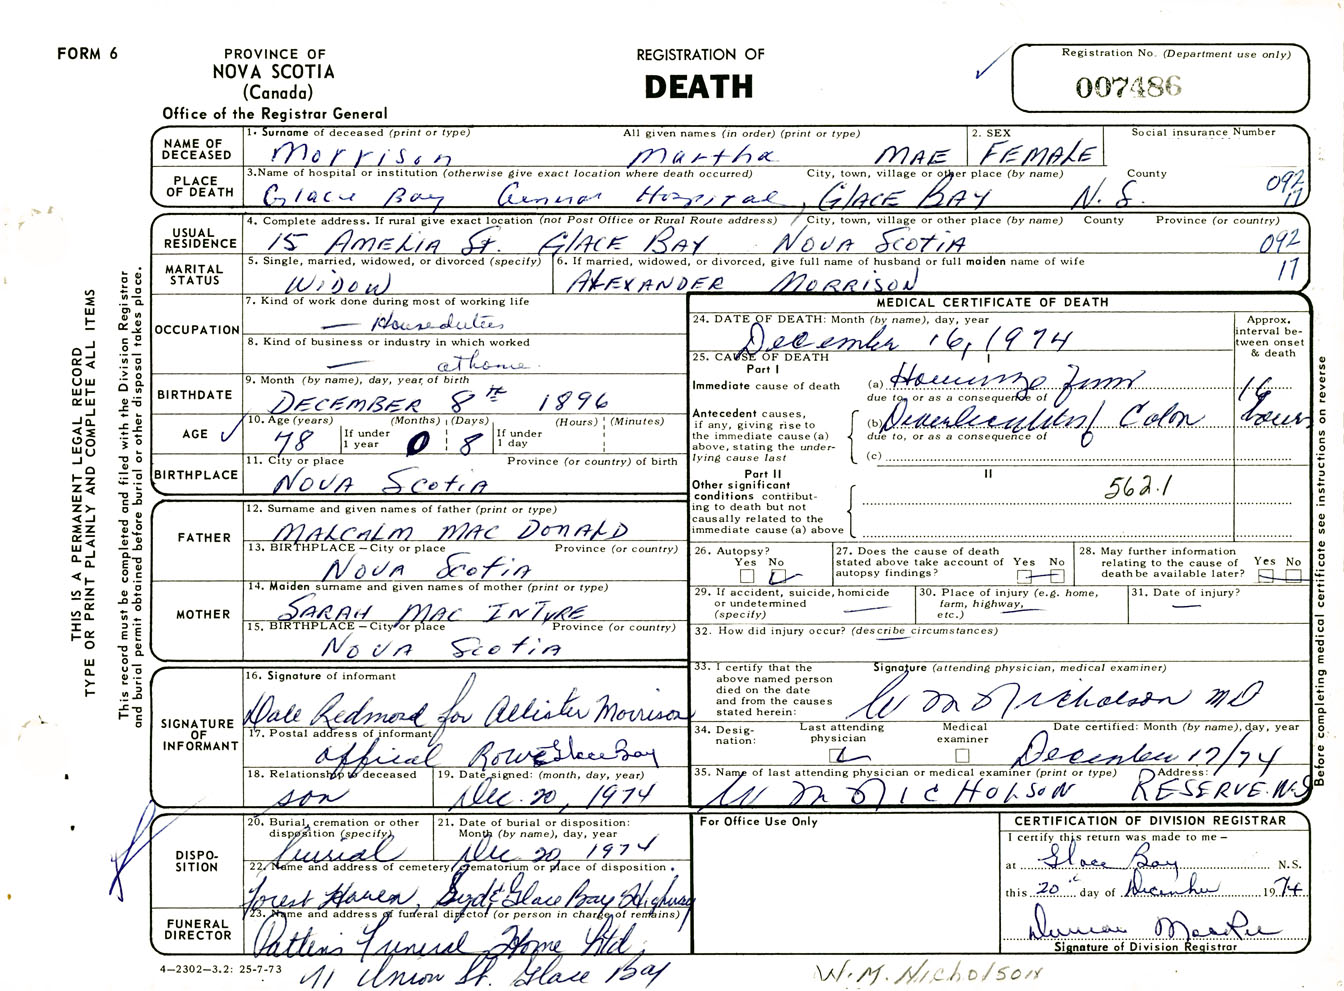 FORM 6
PROVINCE OF
NOVA SCOTIA
(Canada)
Office of the Registrar General
REGISTRATION OF
DEATH
Registration No. (Department use only)
007486
THIS IS A PERMANENT LEGAL RECORD
TYPE OR PRINT PLAINLY AND COMPLETE ALL ITEMS
This record must be completed and filed with the Division Registrar
and burial permit obtained before burial or other disposal takes place.
NAME OF DECEASED
1. Surname of deceased (print or type) All given names (in order) (print or type) 2. SEX Social insurance Number
Morrison Martha MAE FEMALE
PLACE OF DEATH
3. Name of hospital or institution (otherwise give exact location where death occurred) City, town, village or other place (by name) County
Glace Bay General Hospital, GLACE BAY N.S. 092
17
USUAL RESIDENCE
4. Complete address. If rural give exact location (not Post Office or Rural Route address) City, town, village or other place (by name) County Province (or country)
15 AMELIA St. GLACE BAY NOVA SCOTIA 092
17
MARITAL STATUS
5. Single, married, widowed, or divorced (specify) 6. If married, widowed, or divorced, give full name of husband or full maiden name of wife
WIDOW ALEXANDER MORRISON
OCCUPATION
7. Kind of work done during most of working life
— Houseduties
8. Kind of business or industry in which worked
— at home.
BIRTHDATE
9. Month (by name), day, year, of birth
DECEMBER 8TH 1896
AGE
10. Age (years) (Months) (Days) (Hours) (Minutes)
78 If under 1 year 0 8 If under 1 day
BIRTHPLACE
11. City or place Province (or country) of birth
NOVA SCOTIA
FATHER
12. Surname and given names of father (print or type)
MALCALM MAC DONALD
13. BIRTHPLACE – City or place Province (or country)
NOVA SCOTIA
MOTHER
14. Maiden surname and given names of mother (print or type)
SARAH MAC INTYRE
15. BIRTHPLACE – City or place Province (or country)
NOVA SCOTIA
SIGNATURE OF INFORMANT
16. Signature of informant
Dale Redmond for Allister Morrison
17. Postal address of informant
Official Row Glace Bay
18. Relationship to deceased 19. Date signed: (month, day, year)
son Dec. 20, 1974
DISPOSITION
20. Burial, cremation or other disposition (specify) 21. Date of burial or disposition: Month (by name), day, year
burial Dec 20, 1974
22. Name and address of cemetery, crematorium or place of disposition.
Forest Haven, Syd & Glace Bay Highway
FUNERAL DIRECTOR
23. Name and address of funeral director (or person in charge of remains)
Patten's Funeral Home Ltd,
71 Union St. Glace Bay
4–2302–3.2: 25-7-73
MEDICAL CERTIFICATE OF DEATH
24. DATE OF DEATH: Month (by name), day, year
December 16, 1974
Approx. interval between onset & death
25. CAUSE OF DEATH
Part I I
Immediate cause of death (a)
due to, or as a consequence of
16 hours
Antecedent causes, if any, giving rise to the immediate cause (a) above, stating the underlying cause last
(b) Colon
due to, or as a consequence of
(c)
Part II II
Other significant conditions contributing to death but not causally related to the immediate cause (a) above
562.1
26. Autopsy? Yes No
27. Does the cause of death stated above take account of autopsy findings? Yes No
28. May further information relating to the cause of death be available later? Yes No
29. If accident, suicide, homicide or undetermined (specify) —
30. Place of injury (e.g. home, farm, highway, etc.) —
31. Date of injury? —
32. How did injury occur? (describe circumstances)
33. I certify that the above named person died on the date and from the causes stated herein: Signature (attending physician, medical examiner)
W M Nicholson MD
34. Designation: Last attending physician Medical examiner Date certified: Month (by name), day, year
December 17/74
35. Name of last attending physician or medical examiner (print or type) Address:
W M NICHOLSON RESERVE. N.S
Before completing medical certificate see instructions on reverse
For Office Use Only
CERTIFICATION OF DIVISION REGISTRAR
I certify this return was made to me –
at Glace Bay N.S.
this 20th day of December 1974
Duncan MacRae
Signature of Division Registrar
W.M. NICHOLSON